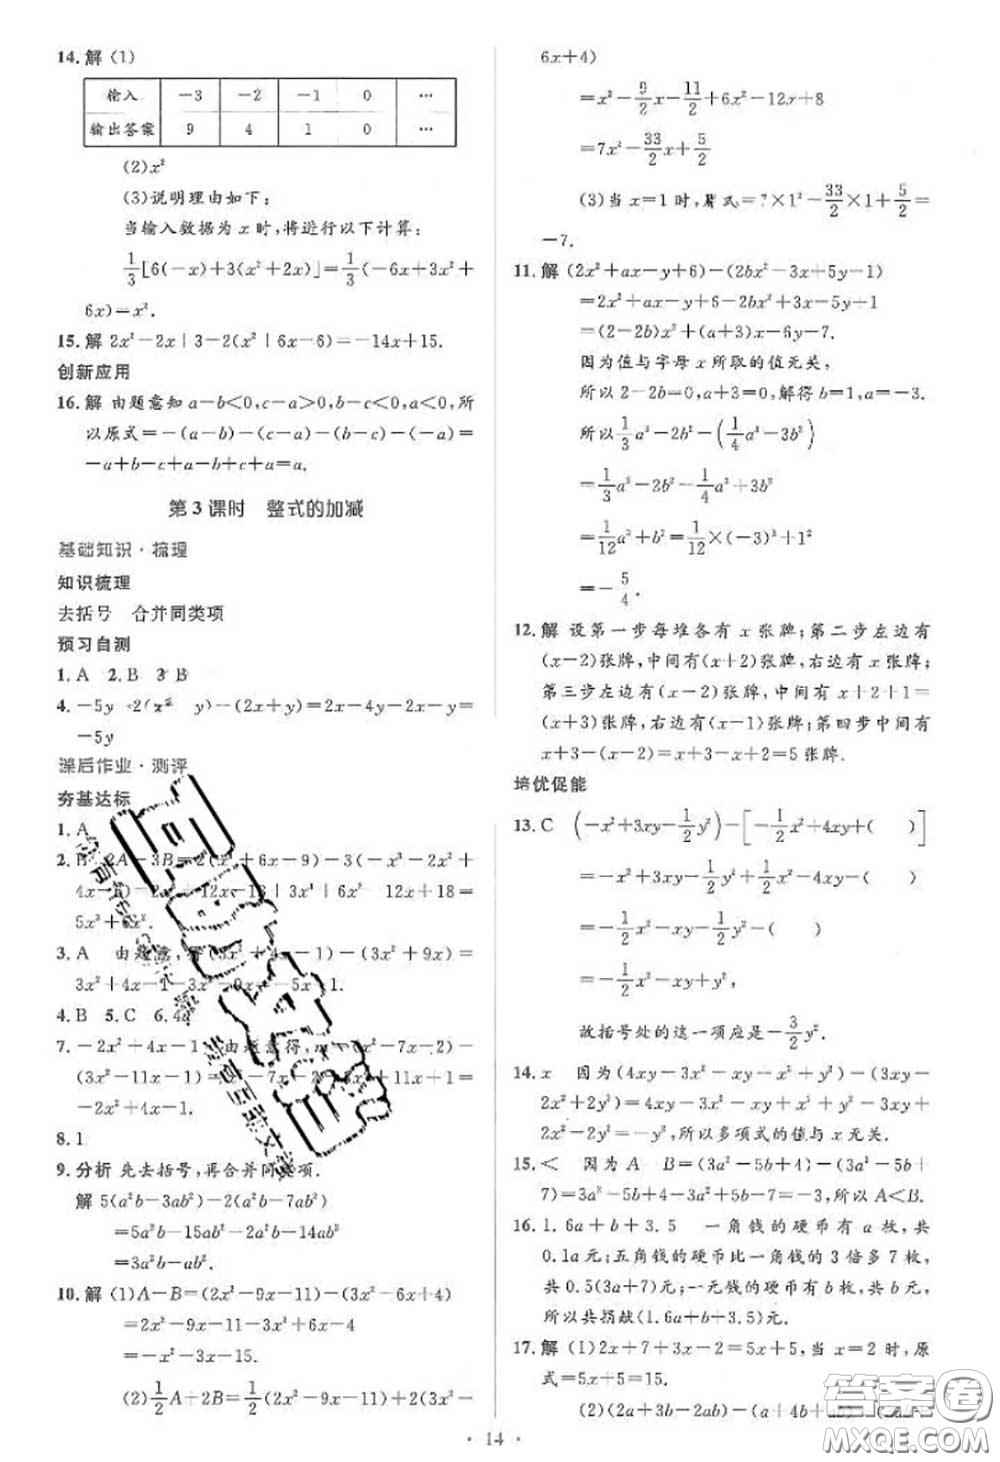 14. 解 (1)
输入 −3 −2 −1 0 …
输出答案 9 4 1 0 …
(2)x²
(3)说明理由如下:
当输入数据为 x 时,将进行以下计算:
1/3[6(−x)+3(x²+2x)]=1/3(−6x+3x²+
6x)=x².
15. 解 2x²−2x|3−2(x²|6x−6)=−14x+15.
创新应用
16. 解 由题意知 a−b<0,c−a>0,b−c<0,a<0,所
以原式=−(a−b)−(c−a)+(b−c)−(−a)=
−a+b−c+a+b−c+a=a.
第3课时 整式的加减
基础知识·梳理
知识梳理
去括号 合并同类项
预习自测
1. A 2. B 3 B
4. −5y y)−(2x+y)=2x−4y−2x−y=
−5y
课后作业·测评
夯基达标
1. A
2. B 2A−3B=2( +6x−9)−3(−x³−2x²+
12x+18=
5x³+6x².
3. A 由题意, +4x−1)−(3x²+9x)=
3x²+4x−1−3x² −5x−1.
4. B 5. C 6. 4a
7. −2x²+4x−1 由题意得, −7x−2)−
(3x²−11x +11x+1=
−2x²+4x−1.
8. 1
9. 分析 先去括号,再合并同类项.
解 5(a²b−3ab²)−2(a²b−7ab²)
=5a²b−15ab²−2a²b+14ab²
=3a²b−ab².
10. 解 (1)A−B=(2x²−9x−11)−(3x²−6x+4)
=2x²−9x−11−3x²+6x−4
=−x²−3x−15.
(2)1/2A+2B=1/2(2x²−9x−11)+2(3x²−
6x+4)
=x²−9/2x−11/2+6x²−12x+8
=7x²−33/2x+5/2
(3)当 x=1 时,原式=7×1²−33/2×1+5/2=
−7.
11. 解 (2x²+ax−y+6)−(2bx²−3x+5y−1)
=2x²+ax−y+6−2bx²+3x−5y+1
=(2−2b)x²+(a+3)x−6y−7.
因为值与字母 x 所取的值无关,
所以 2−2b=0,a+3=0,解得 b=1,a=−3.
所以1/3a³−2b²−(1/4a³−3b²)
=1/3a³−2b²−1/4a³+3b²
=1/12a³+b²=1/12×(−3)³+1²
=−5/4.
12. 解 设第一步每堆各有 x 张牌;第二步左边有
(x−2)张牌,中间有(x+2)张牌,右边有 x 张牌;
第三步左边有(x−2)张牌,中间有 x+2+1=
(x+3)张牌,右边有(x−1)张牌;第四步中间有
x+3−(x−2)=x+3−x+2=5 张牌.
培优促能
13. C (−x²+3xy−1/2y²)−[−1/2x²+4xy+( )]
=−x²+3xy−1/2y²+1/2x²−4xy−( )
=−1/2x²−xy−1/2y²−( )
=−1/2x²−xy+y²,
故括号处的这一项应是−3/2y².
14. x 因为(4xy−3x²−xy+x²+y²)−(3xy−
2x²+2y²)=4xy−3x²−xy+x²+y²−3xy+
2x²−2y²=−y²,所以多项式的值与 x 无关.
15. < 因为 A B=(3a²−5b+4)−(3a²−5b+
7)=3a²−5b+4−3a²+5b−7=−3<0,所以 A<B.
16. 1.6a+b+3.5 一角钱的硬币有 a 枚,共
0.1a 元;五角钱的硬币比一角钱的 3 倍多 7 枚,
共 0.5(3a+7)元;一元钱的硬币有 b 枚,共 b 元,
所以共捐献(1.6a+b+3.5)元.
17. 解 (1)2x+7+3x−2=5x+5,当 x=2 时,原
式=5x+5=15.
(2)(2a+3b−2ab)−(a+4b+ab)
· 14 ·
答案圈
MXQE.COM